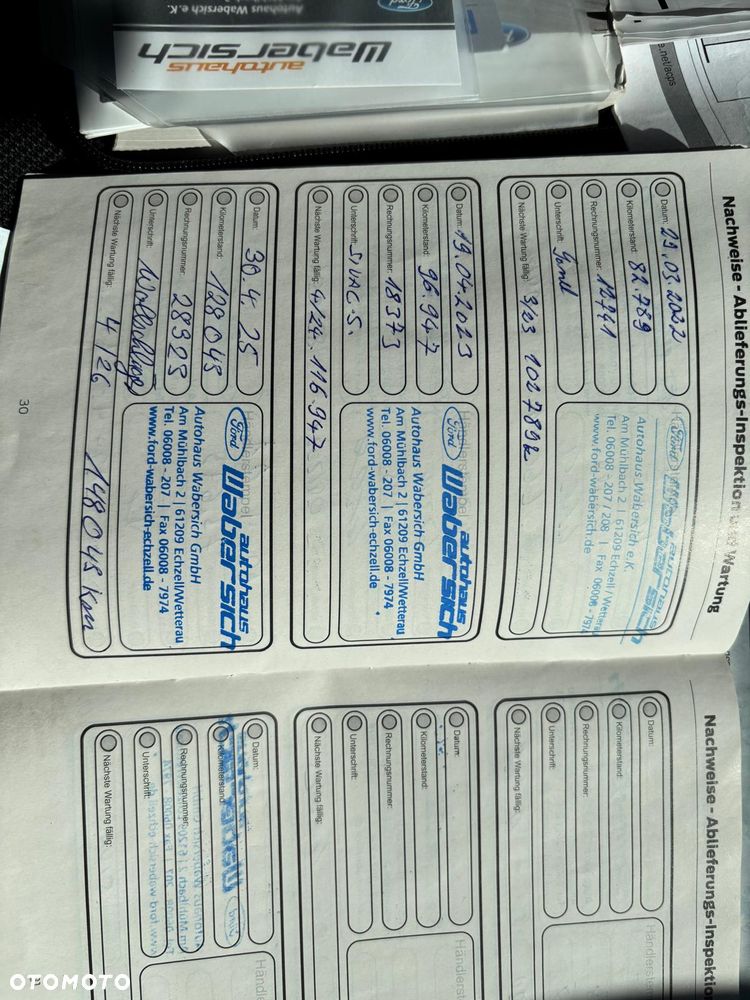 Ford
Autohaus Wabersich e.K.
autohaus
Wabersich
e.net/acps
Nachweise - Ablieferungs-Inspektion und Wartung
Datum: 29.03.2022
Kilometerstand: 82.789
Rechnungsnummer: 12741
Unterschrift:
Nächste Wartung fällig: 3/23 102789k
Ford
autohaus
Wabersich
Autohaus Wabersich e.K.
Am Mühlbach 2 | 61209 Echzell/Wetterau
Tel. 06008 - 207 / 208 | Fax 06008 - 7974
www.ford-wabersich.de
Datum: 19.04.2023
Kilometerstand: 96.947
Rechnungsnummer: 18373
Unterschrift:
Nächste Wartung fällig: 4/24. 116.947
Händlerstempel
Ford
autohaus
Wabersich
Autohaus Wabersich GmbH
Am Mühlbach 2 | 61209 Echzell/Wetterau
Tel. 06008 - 207 | Fax 06008 - 7974
www.ford-wabersich-echzell.de
Datum: 30.4.25
Kilometerstand: 128045
Rechnungsnummer: 28323
Unterschrift:
Nächste Wartung fällig: 4/26 148045 km
Händlerstempel
Ford
autohaus
Wabersich
Autohaus Wabersich GmbH
Am Mühlbach 2 | 61209 Echzell/Wetterau
Tel. 06008 - 207 | Fax 06008 - 7974
www.ford-wabersich-echzell.de
30
Nachweise - Ablieferungs-Inspektio
Datum:
Kilometerstand:
Rechnungsnummer:
Unterschrift:
Nächste Wartung fällig:
Händlerste
Datum:
Kilometerstand:
Rechnungsnummer:
Unterschrift:
Nächste Wartung fällig:
Händlerst
Datum:
Kilometerstand:
Rechnungsnummer:
Unterschrift:
Nächste Wartung fällig:
Händler
OTOMOTO